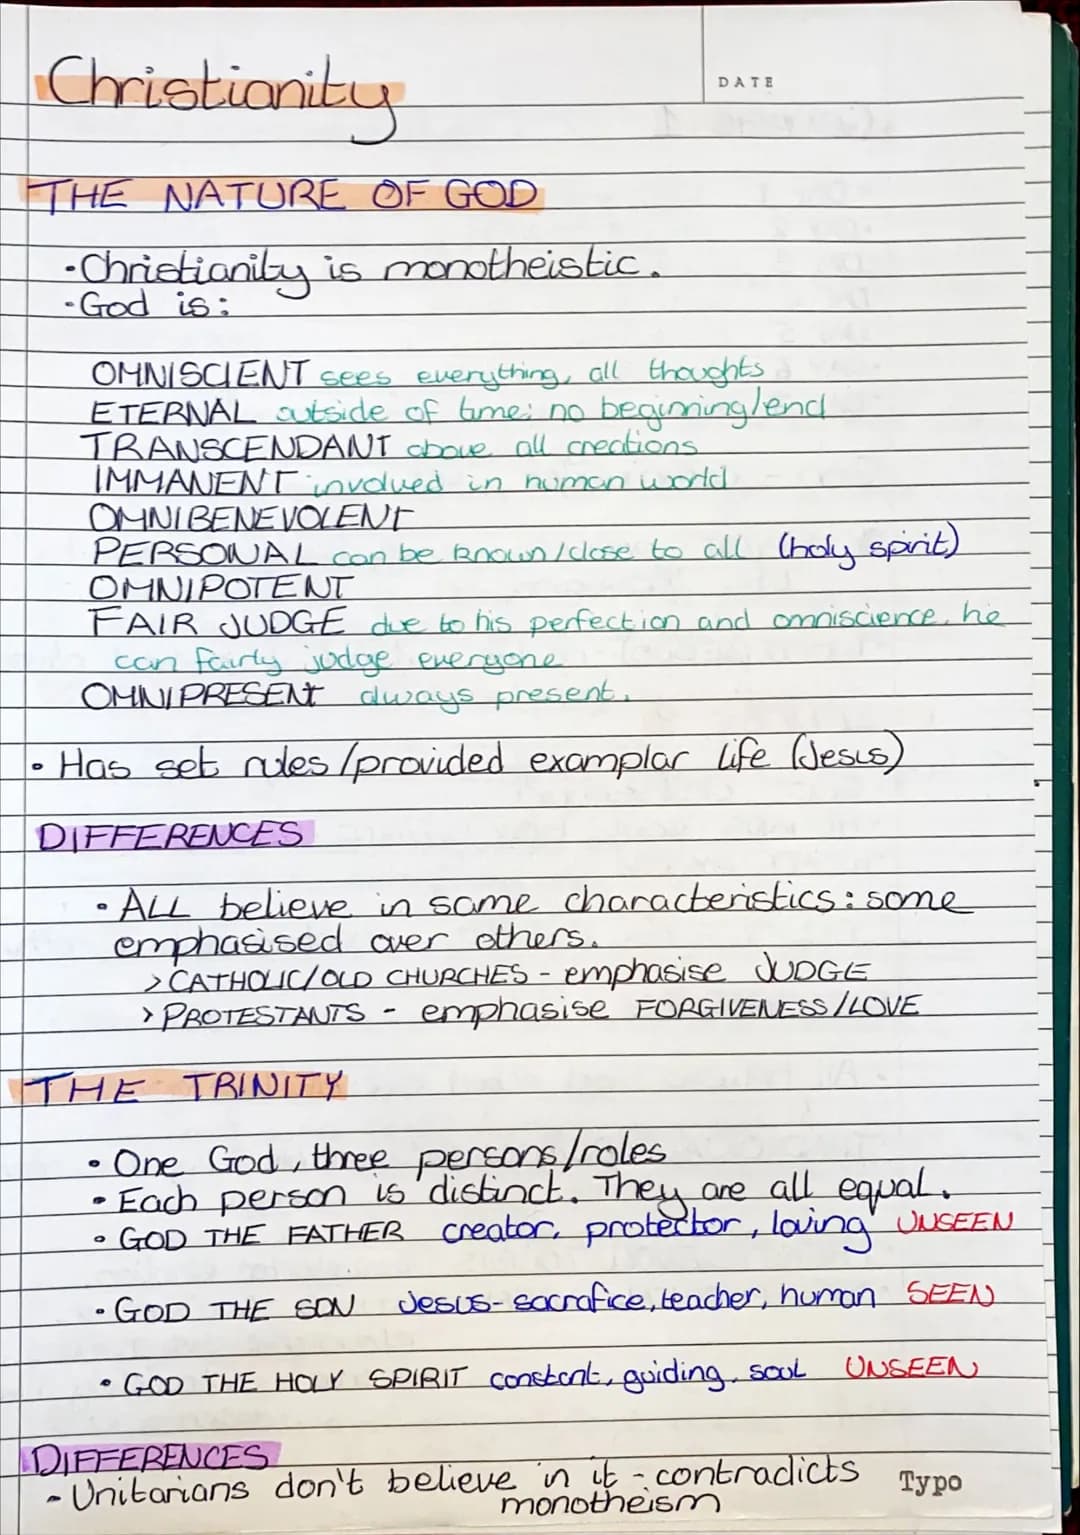 Christianity
DATE
THE NATURE OF GOD
·Christianity is monotheistic.
·God is:
OMNISCIENT sees everything, all thoughts
ETERNAL outside of time; no beginning/end
TRANSCENDANT above all creations
IMMANENT involved in human world
OMNIBENEVOLENT
PERSONAL can be known/close to all (holy spirit)
OMNIPOTENT
FAIR JUDGE due to his perfection and omniscience, he
can fairly judge everyone
OMNIPRESENT always present.
• Has set rules/provided examplar life (Jesus)
DIFFERENCES
• ALL believe in same characteristics: some
emphasised over others.
> CATHOLIC/OLD CHURCHES - emphasise JUDGE
> PROTESTANTS - emphasise FORGIVENESS/LOVE
THE TRINITY
• One God, three persons/roles
• Each person is distinct. They are all equal.
• GOD THE FATHER creator, protector, loving UNSEEN
• GOD THE SON Jesus- sacrafice, teacher, human SEEN
• GOD THE HOLY SPIRIT constant, guiding, soul UNSEEN
DIFFERENCES
- Unitarians don't believe in it - contradicts
monotheism
Typo